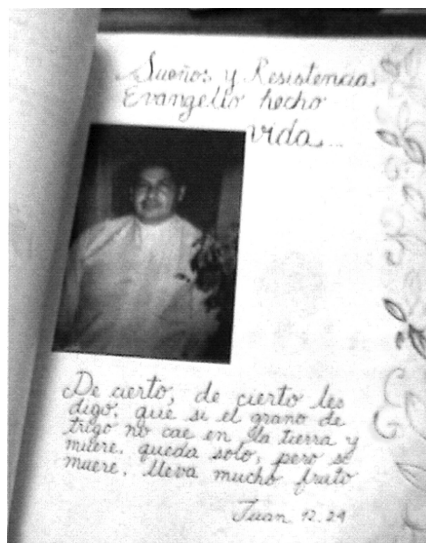 Sueños y Resistencia.
Evangelio hecho
vida...
De cierto, de cierto les
digo, que si el grano de
trigo no cae en la tierra y
muere, queda solo, pero se
muere, lleva mucho fruto
Juan 12.24